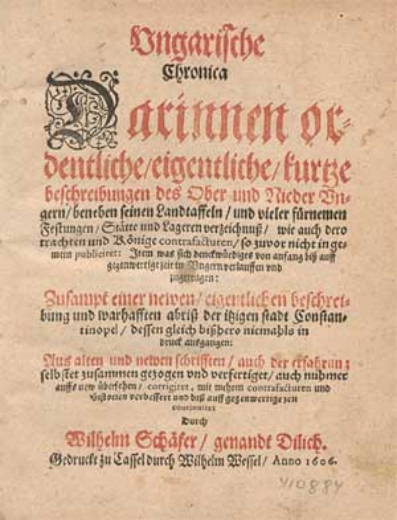 Vngarische
Chronica
Darinnen or-
dentliche/eigentliche/kurtze
beschreibungen des Ober und Nieder Vn-
gern/beneben seinen Landtaffeln/und vieler fürnemen
Festungen/Stätte und Lageren verzeichnuß/ wie auch dero
trachten und Könige contrafacturen/so zuvor nicht in ge-
mein publiciret: Item was sich denckwürdiges von anfang biß auff
gegenwertige zeit in Vngern verlauffen und
zugetragen:
Zusampt einer newen/eigentlichen beschrei-
bung und warhafften abriß der itzigen stadt Constan-
tinopel/ dessen gleich bißhero niemahls in
druck ausgangen:
Aus alten und newen schrifften/ auch der erfahrung
selbstet zusammen gezogen vnd verfertiget/auch nuhmer
auffs new übersehen/ corrigiret, mit mehrm contrafacturen und
Historien verbessert und biß auff gegenwertige zeit
continuiret
Durch
Wilhelm Schäfer/ genandt Dilich.
Gedruckt zu Cassel durch Wilhelm Wessel/ Anno 1606.
410884